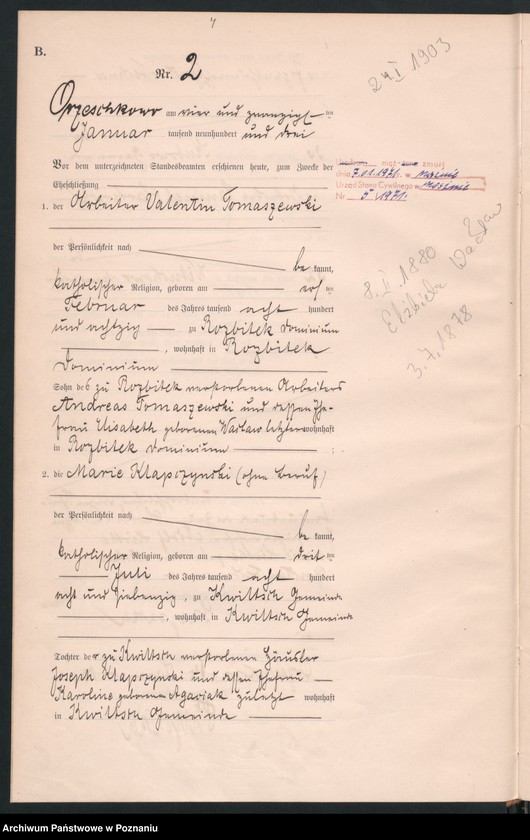 B.
Nr. 2
24 I 1903
Orzeschkowo am vier und zwanzigsten
Januar tausend neunhundert und drei
Vor dem unterzeichneten Standesbeamten erschienen heute, zum Zwecke der
Eheschließung
1. der Arbeiter Valentin Tomaszewski
zmarł
dnia 7.01.1971. w
Urząd Stanu Cywilnego w
Nr 5/1971.
der Persönlichkeit nach
be kannt,
katholischer Religion, geboren am
ten
Februar des Jahres tausend acht hundert
und achtzig zu Rozbitek Dominium
, wohnhaft in Rozbitek
Dominium
8. II. 1880
Elżbieta
3.7.1878
Sohn des zu Rozbitek verstorbenen Arbeiters
Andreas Tomaszewski und dessen Ehe-
frau Elisabeth geborenen Wacław letztere wohnhaft
in Rozbitek Dominium ;
2. die Marie Klapczynski (ohne Beruf)
der Persönlichkeit nach
be kannt,
katholischer Religion, geboren am dritten
Juli des Jahres tausend acht hundert
acht und siebenzig, zu Kwiltsch Gemeinde
, wohnhaft in Kwiltsch Gemeinde
Tochter der zu Kwiltsch verstorbenen Häusler
Joseph Klapczynski und dessen Ehefrau
Karoline geborene zuletzt wohnhaft
in Kwiltsch Gemeinde
Archiwum Państwowe w Poznaniu